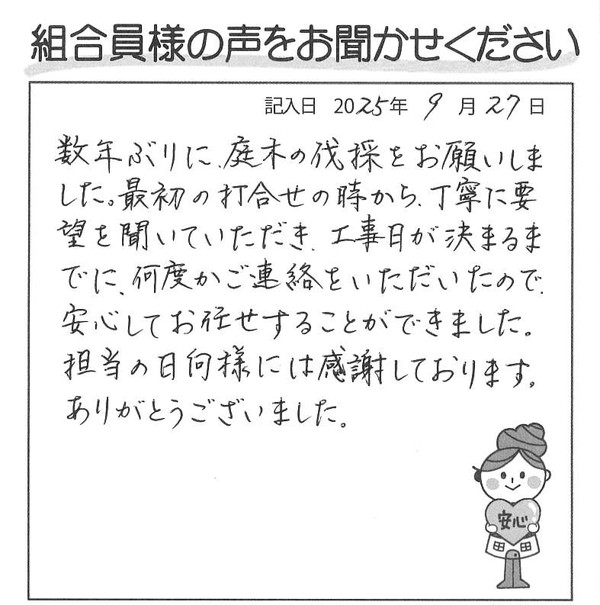 組合員様の声をお聞かせください
記入日 2025年 9月27日
数年ぶりに、庭木の伐採をお願いしま
した。最初の打合せの時から、丁寧に要
望を聞いていただき、工事日が決まるま
でに、何度かご連絡をいただいたので、
安心してお任せすることができました。
担当の日向様には感謝しております。
ありがとうございました。
安心